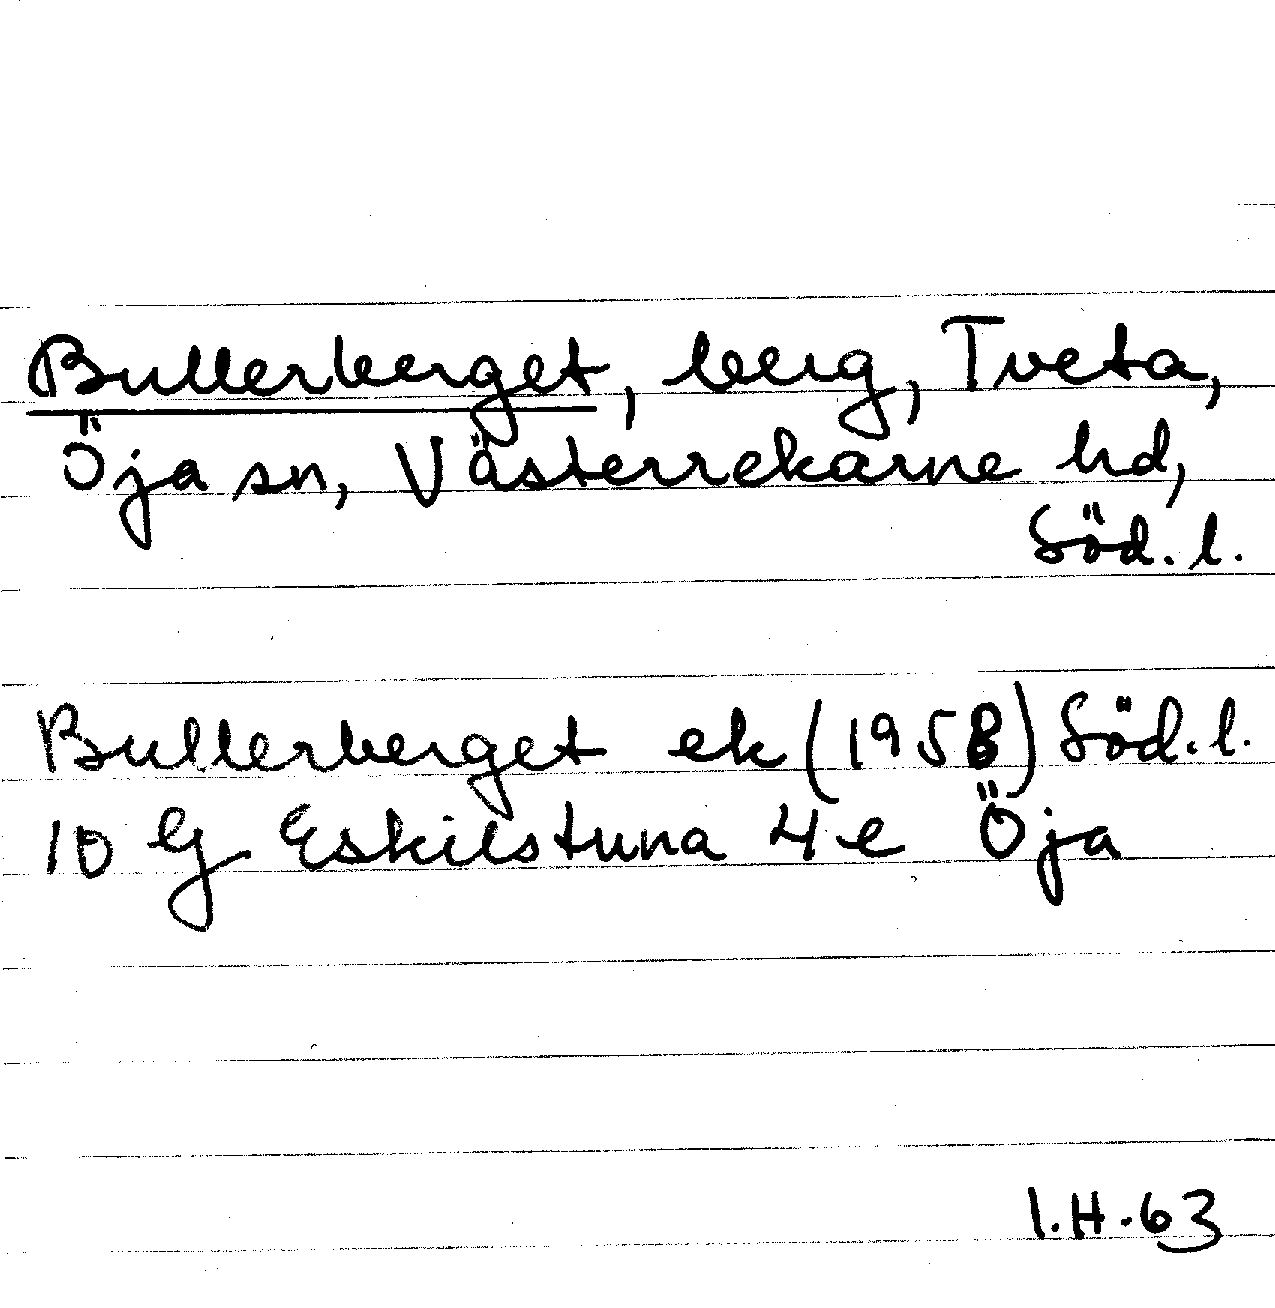 Bullerberget, berg, Tveta,
Öja sn, Västerrekarne hd,
Söd. l.
Bullerberget ek (1958) Söd. l.
10 G Eskilstuna 4 e Öja
I.H.63